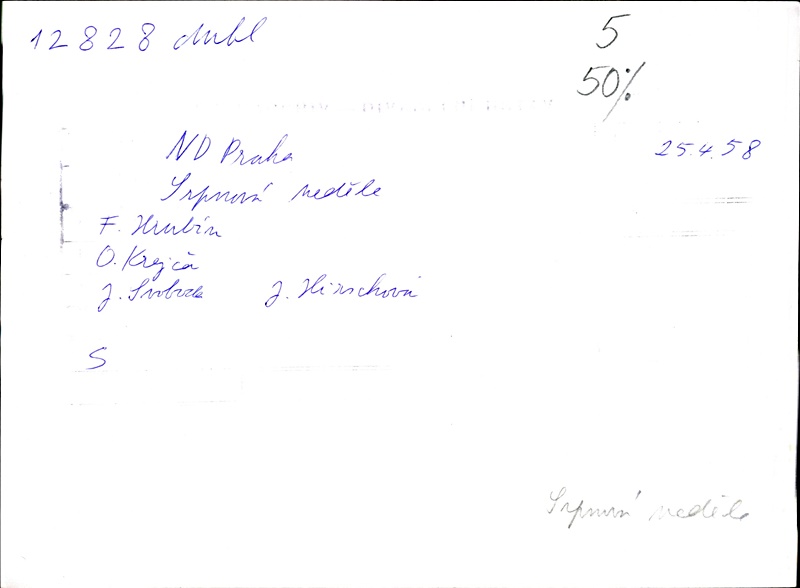 12828 dubl
5
50%
ND Praha
25.4.58
Srpnová neděle
F. Hrubín
O. Krejča
J. Svoboda J. Hirschová
S
Srpnová neděle